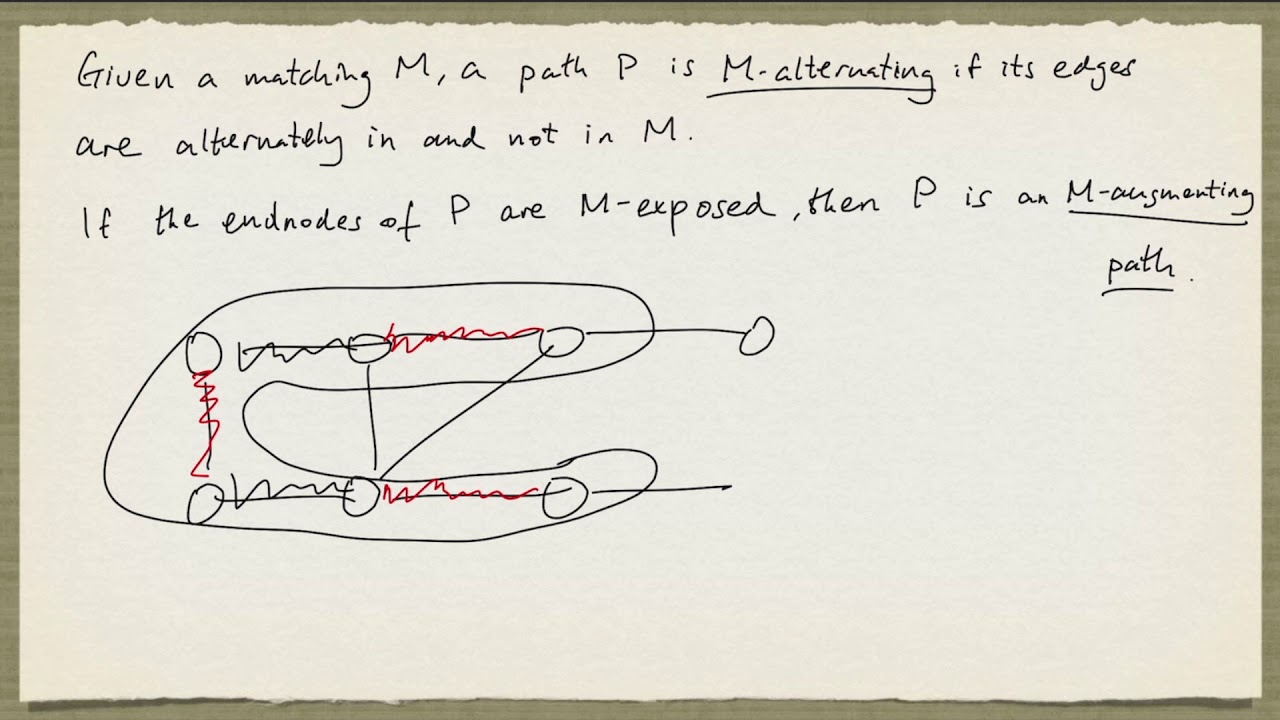 Given a matching M, a path P is M-alternating if its edges
are alternately in and not in M.
If the endnodes of P are M-exposed, then P is an M-augmenting
path.